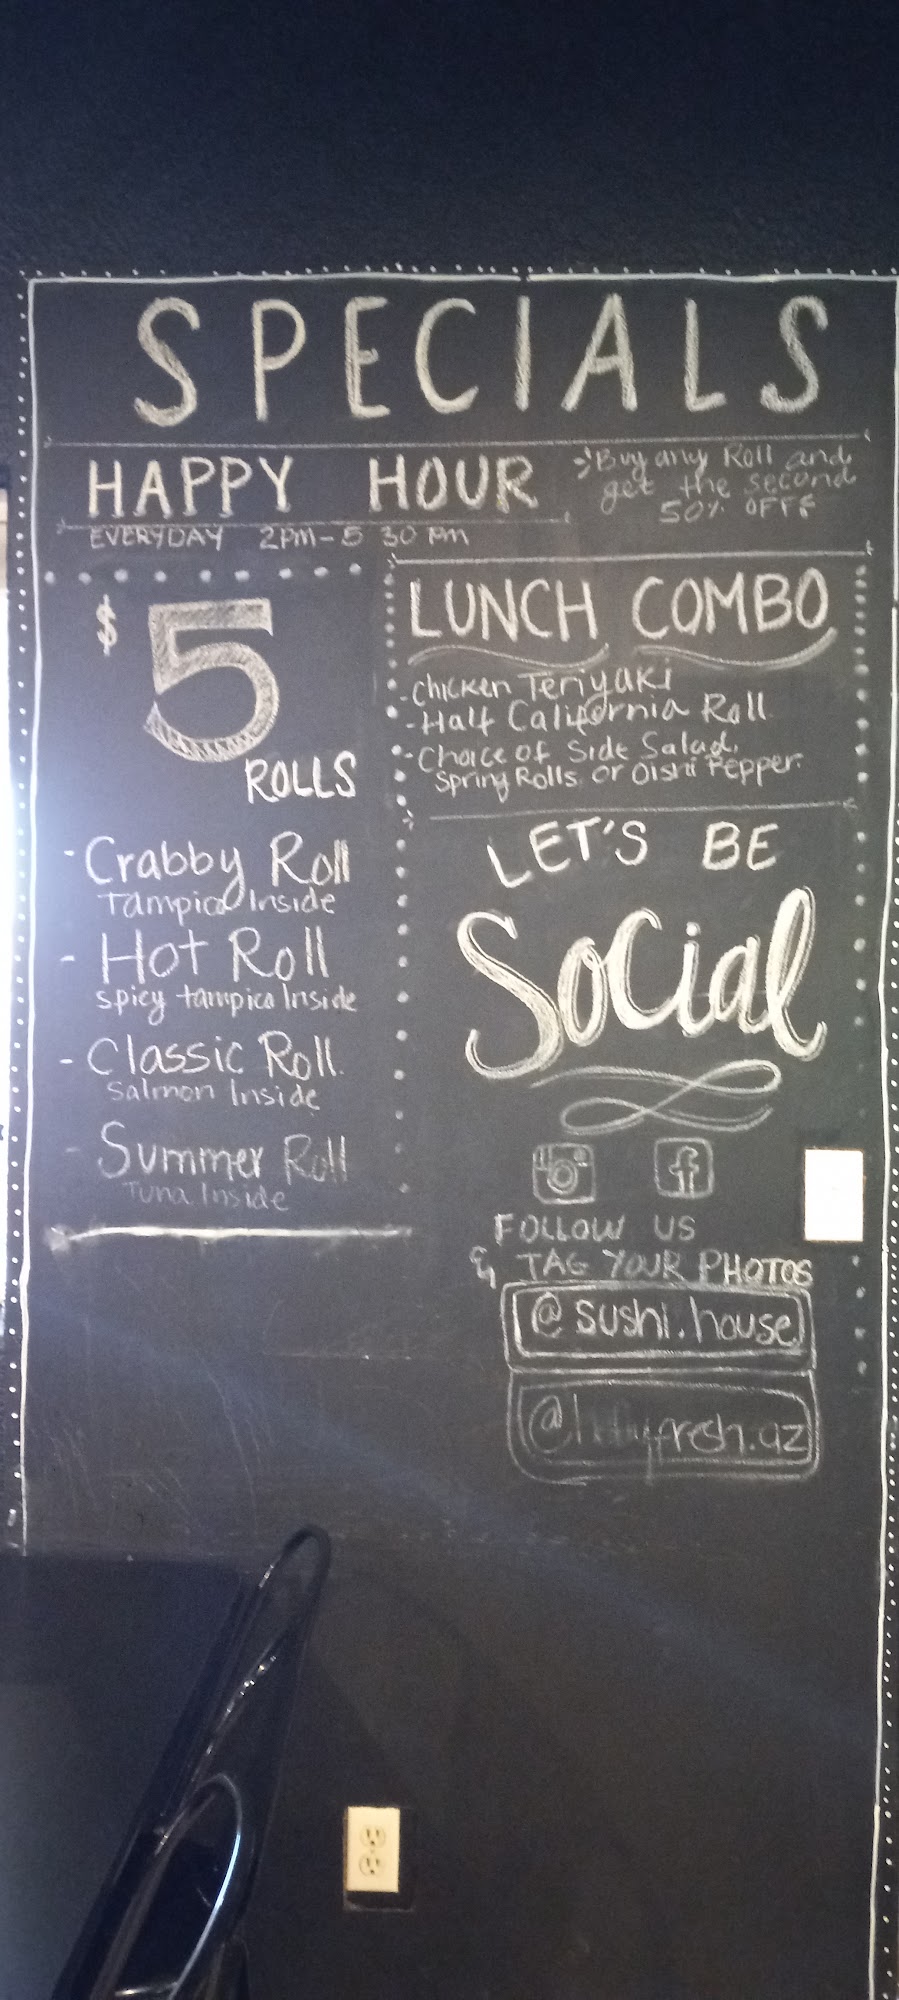 SPECIALS
HAPPY HOUR
EVERYDAY 2PM-5 30 PM
Buy any Roll and
get the second
50% OFF
$5
ROLLS
- Crabby Roll
Tampico Inside
- Hot Roll
spicy tampico Inside
- Classic Roll
Salmon Inside
- Summer Roll
Tuna Inside
LUNCH COMBO
- Chicken Teriyaki
- Half California Roll
- Choice of Side Salad,
Spring Rolls or Oishi Pepper
LET'S BE
Social
FOLLOW US
& TAG YOUR PHOTOS
@sushi.house